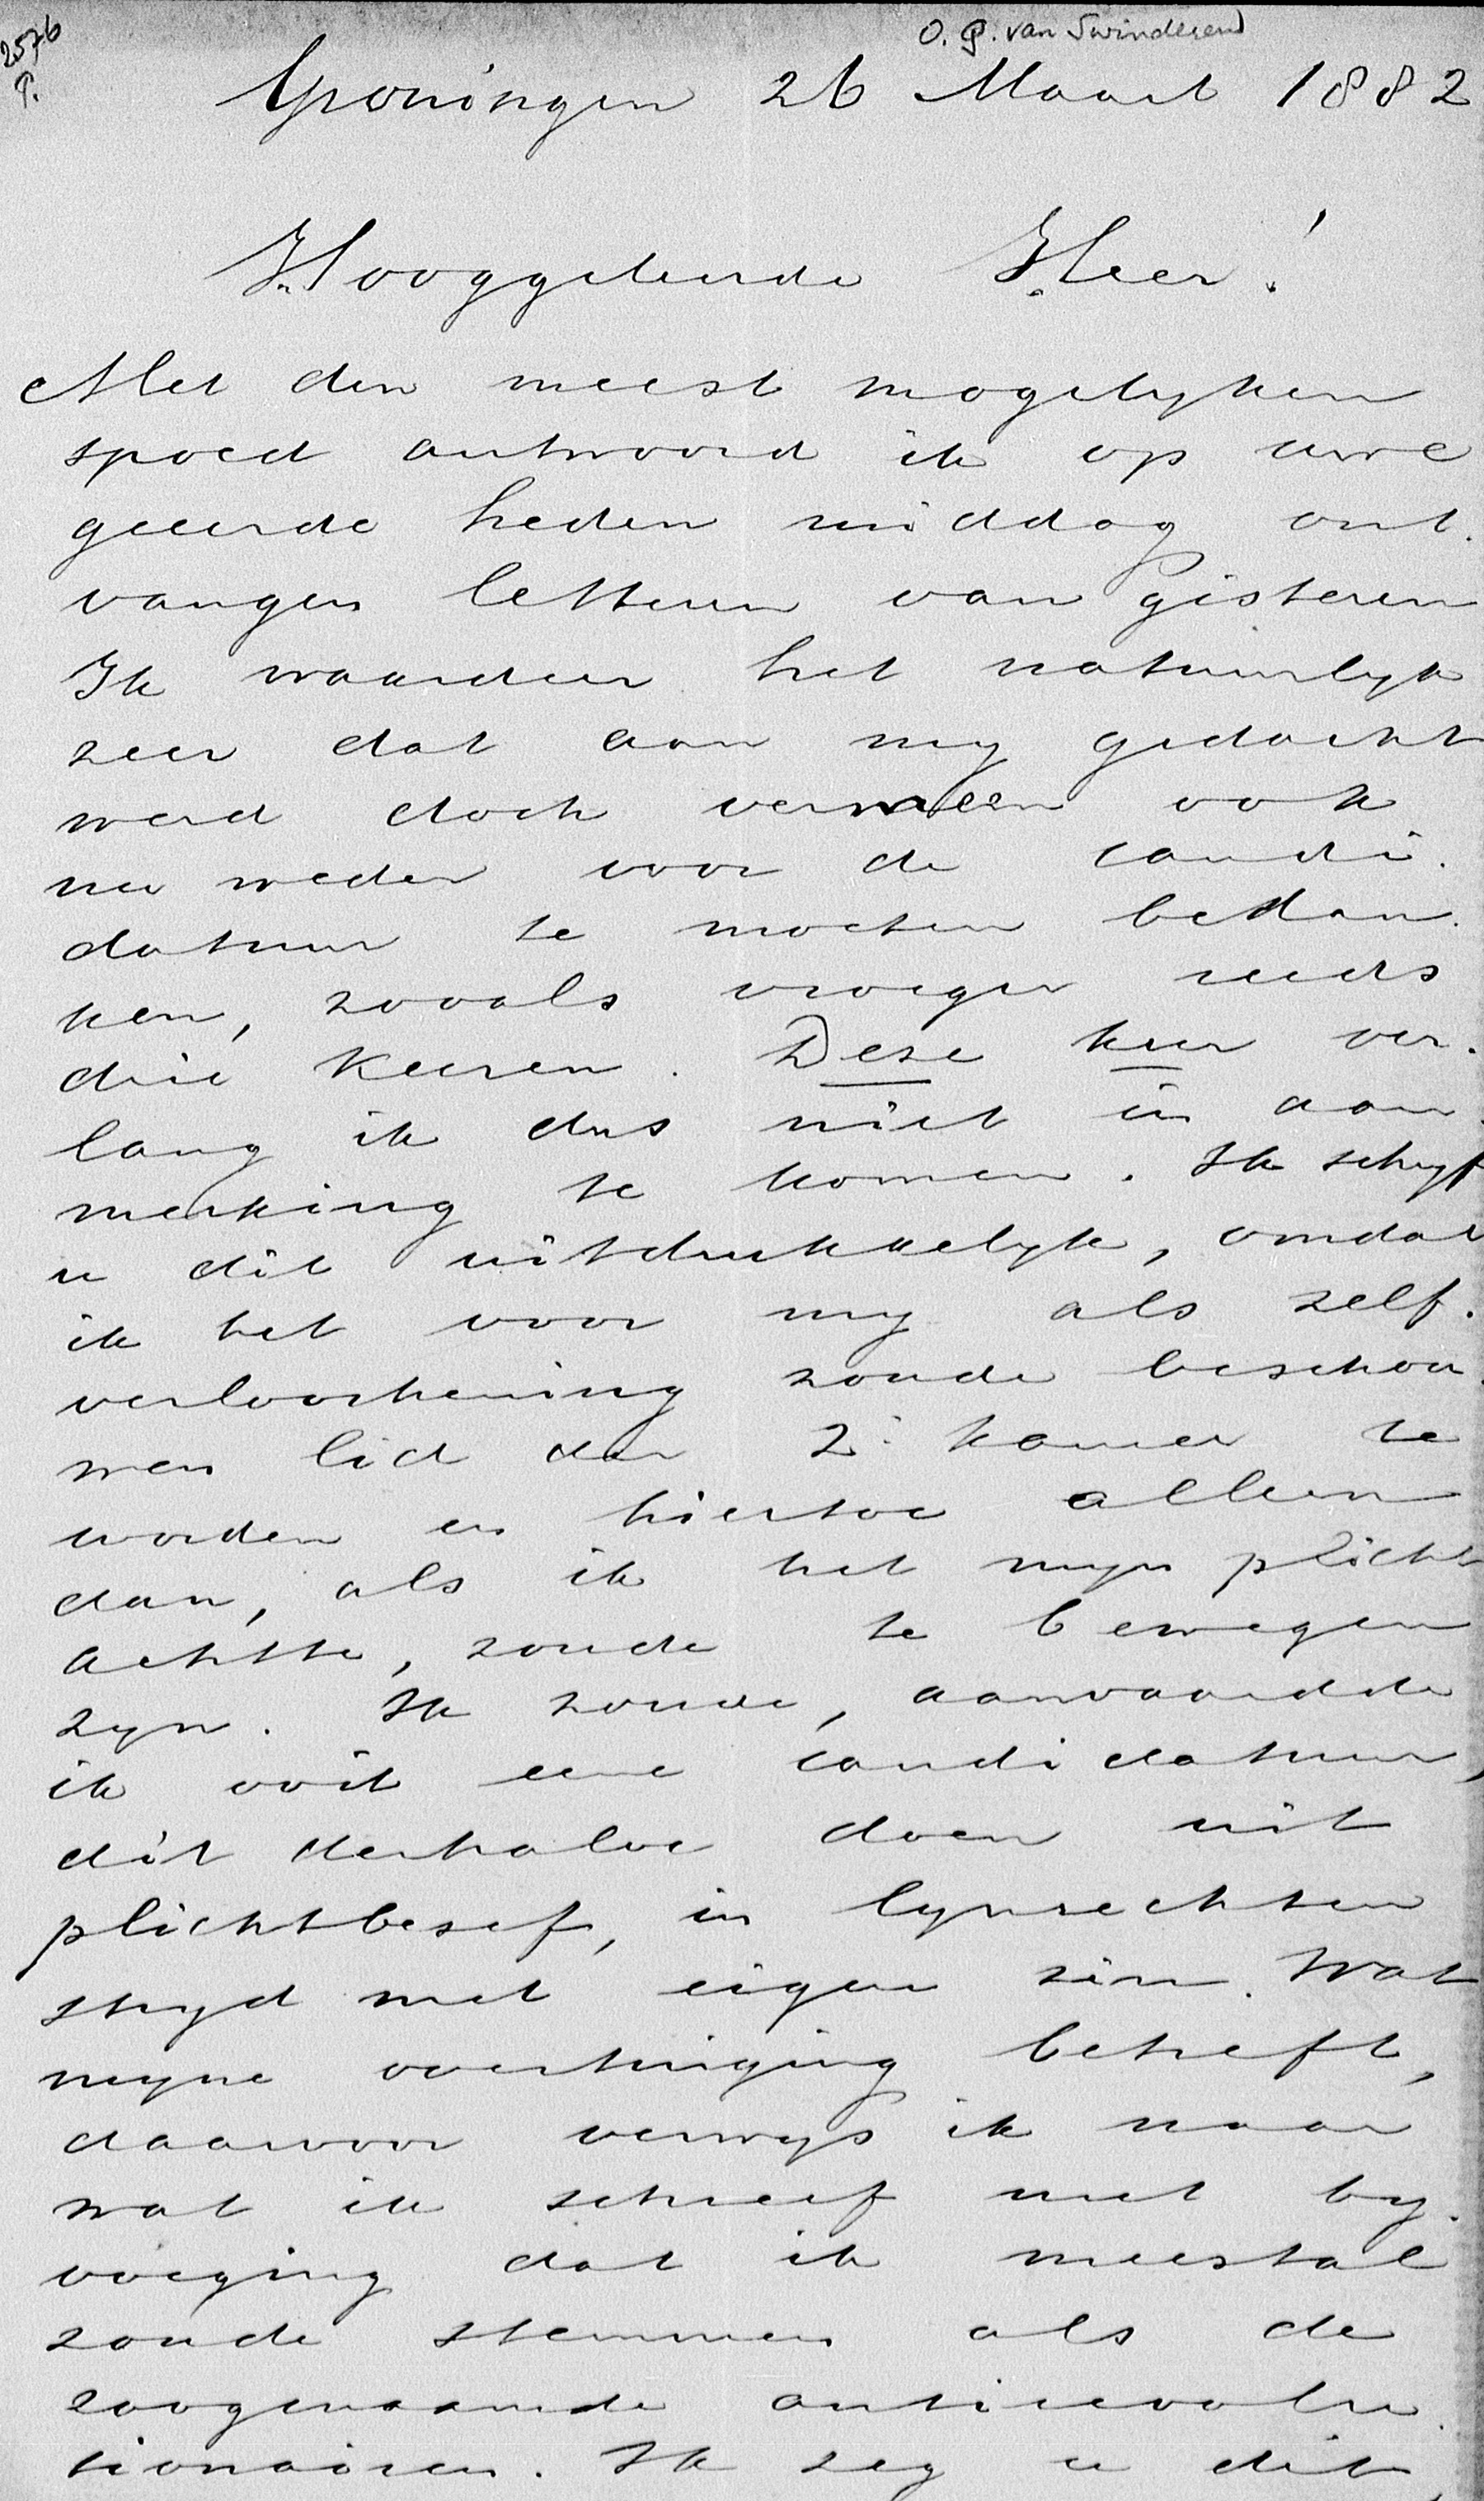 O. Q. van Swinderen
2576
P.
Groningen 26 Maart 1882
Hooggeleerde Heer!
Met den meest mogelyken
spoed antwoord ik op uwe
geeerde heden middag ont.
vangen letteren van gisteren
Ik waardeer het natuurlyk
zeer dat aan my gedacht
werd doch vermeen ook
nu weder voor de candi.
datuur te moeten bedan.
ken, zooals vroeger reeds
drie keeren. Deze keer ver.
lang ik dus niet in aan.
merking te komen. Ik schryf
u dit uitdrukkelyk, omdat
ik het voor my als zelf.
verloochening zoude beschou.
wen lid der 2e kamer te
worden en hiertoe alleen
dan, als ik het myn plicht
achtte, zoude te bewegen
zyn. Ik zoude, aanvaardde
ik ooit eene candidatuur,
dit derhalve doen uit
plichtbesef, in lynrechten
stryd met eigen zin. Wat
myne overtuiging betreft,
daarvoor verwys ik naar
wat ik schreef met by.
voeging dat ik meestal
zoude stemmen als de
zoogenaamde antirevolu.
tionairen. Ik zeg u dit,